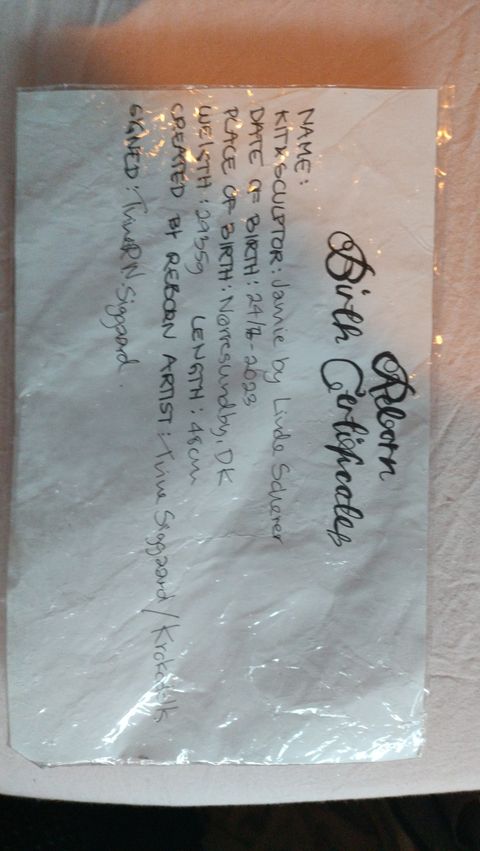 Reborn
Birth Certificates
NAME:
KIT&SCULPTOR: Jamie by Linde Scherer
DATE OF BIRTH: 24/8-2023
PLACE OF BIRTH: Nørresundby, DK
WEIGTH: 2935g LENGTH: 48cm
CREATED BY REBORN ARTIST: Trine Siggaard/
SIGNED: Siggaard.